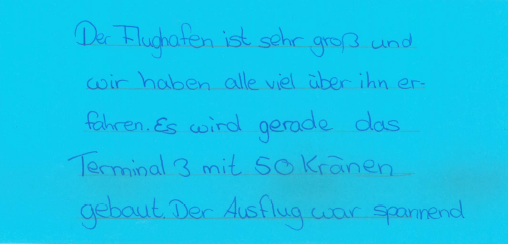 Der Flughafen ist sehr groß und
wir haben alle viel über ihn er-
fahren. Es wird gerade das
Terminal 3 mit 50 Kränen
gebaut. Der Ausflug war spannend